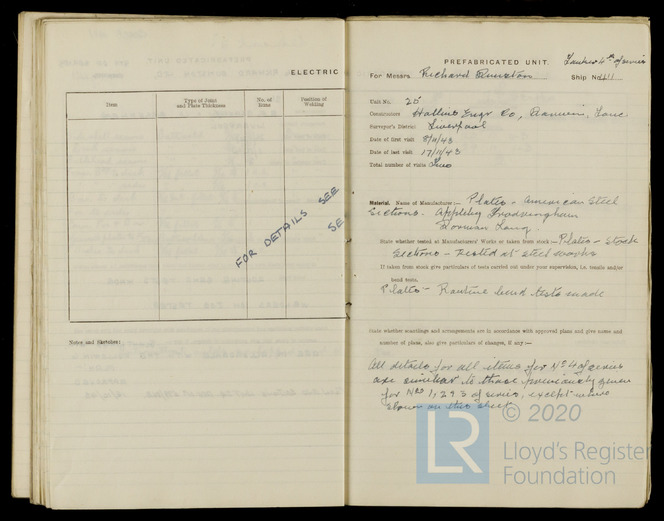 ELECTRIC
Item
Type of Joint
and Plate Thickness
No. of
Items
Position of
Welding
FOR DETAILS SEE
SE
Notes and Sketches:
PREFABRICATED UNIT.
Tanker 4th of series
For Messrs. Richard Dunston
Ship No.
Unit No. 25
Constructors Hollins Engr Co,
Surveyor's District Liverpool
Date of first visit 8/11/43
Date of last visit 17/11/43
Total number of visits Two
Material. Name of Manufacturer:— Plates - American Steel
Sections - Appleby Frodingham
Dorman Long
State whether tested at Manufacturers' Works or taken from stock:— Plates - Stock
Sections - Tested at steel works
If taken from stock give particulars of tests carried out under your supervision, i.e. tensile and/or
bend tests.
Plates - Routine bend tests made
State whether scantlings and arrangements are in accordance with approved plans and give name and
number of plans, also give particulars of changes, if any:—
All details for all items for No 4 of series
are similar to those previously given
for Nos 1, 2 & 3 of series, except where
shown on this sheet
© 2020
LR
Lloyd's Register
Foundation